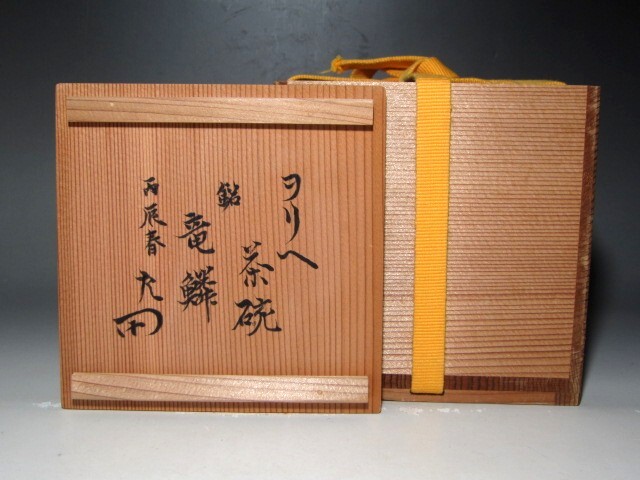 ヲリヘ
茶碗
銘
竜鱗
丙辰春